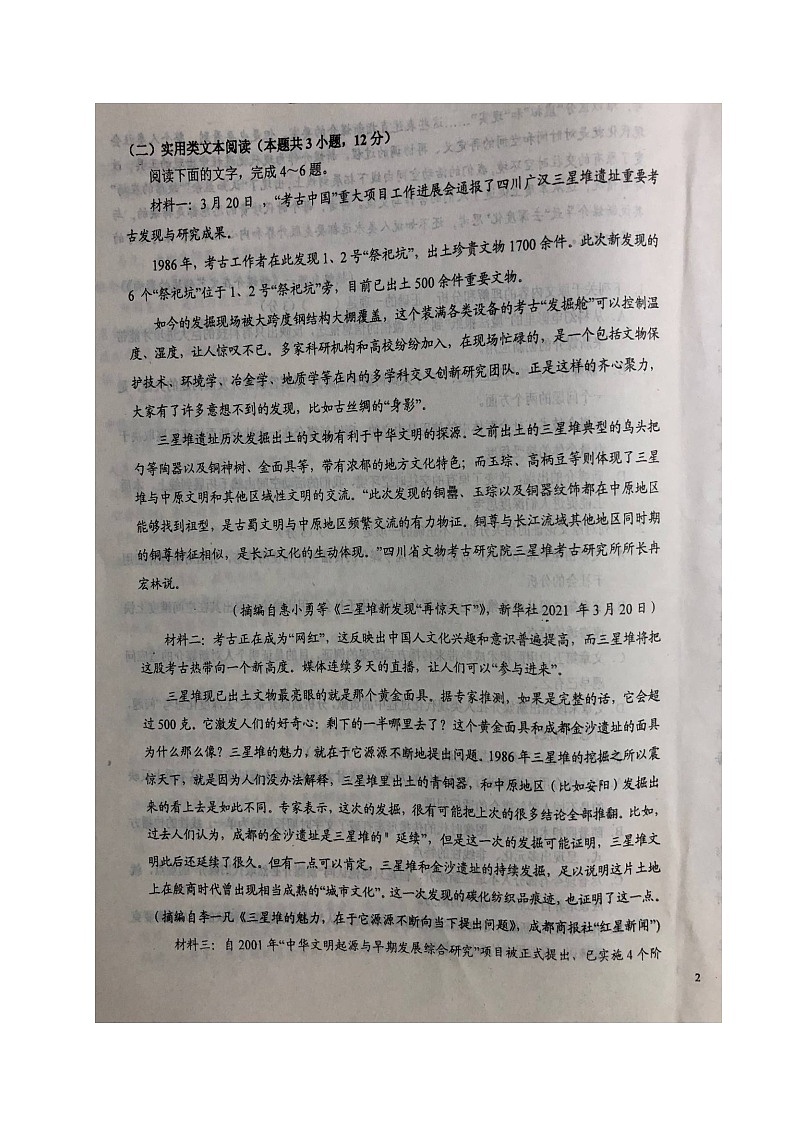 （二）实用类文本阅读（本题共3小题，12分）
阅读下面的文字，完成4～6题。
材料一：3月20日，“考古中国”重大项目工作进展会通报了四川广汉三星堆遗址重要考
古发现与研究成果。
1986年，考古工作者在此发现1、2号“祭祀坑”，出土珍贵文物1700余件。此次新发现的
6个“祭祀坑”位于1、2号“祭祀坑”旁，目前已出土500余件重要文物。
如今的发掘现场被大跨度钢结构大棚覆盖，这个装满各类设备的考古“发掘舱”可以控制温
度、湿度，让人惊叹不已。多家科研机构和高校纷纷加入，在现场忙碌的，是一个包括文物保
护技术、环境学、冶金学、地质学等在内的多学科交叉创新研究团队。正是这样的齐心聚力，
大家有了许多意想不到的发现，比如古丝绸的“身影”。
三星堆遗址历次发掘出土的文物有利于中华文明的探源。之前出土的三星堆典型的鸟头把
勺等陶器以及铜神树、金面具等，带有浓郁的地方文化特色；而玉琮、高柄豆等则体现了三星
堆与中原文明和其他区域性文明的交流。“此次发现的铜罍、玉琮以及铜器纹饰都在中原地区
能够找到祖型，是古蜀文明与中原地区频繁交流的有力物证。铜尊与长江流域其他地区同时期
的铜尊特征相似，是长江文化的生动体现。”四川省文物考古研究院三星堆考古研究所所长冉
宏林说。
（摘编自惠小勇等《三星堆新发现“再惊天下”》，新华社2021 年3月20日）
材料二：考古正在成为“网红”，这反映出中国人文化兴趣和意识普遍提高，而三星堆将把
这股考古热带向一个新高度。媒体连续多天的直播，让人们可以“参与进来”。
三星堆现已出土文物最亮眼的就是那个黄金面具。据专家推测，如果是完整的话，它会超
过500克。它激发人们的好奇心：剩下的一半哪里去了？这个黄金面具和成都金沙遗址的面具
为什么那么像？三星堆的魅力，就在于它源源不断地提出问题。1986年三星堆的挖掘之所以震
惊天下，就是因为人们没办法解释，三星堆里出土的青铜器，和中原地区（比如安阳）发掘出
来的看上去是如此不同。专家表示，这次的发掘，很有可能把上次的很多结论全部推翻。比如，
过去人们认为，成都的金沙遗址是三星堆的＂延续”，但是这一次的发掘可能证明，三星堆文
明此后还延续了很久。但有一点可以肯定，三星堆和金沙遗址的持续发掘，足以说明这片土地
上在殷商时代曾出现相当成熟的“城市文化”。这一次发现的碳化纺织品痕迹，也证明了这一点。
（摘编自李一凡《三星堆的魅力，在于它源源不断向当下提出问题》，成都商报社“红星新闻”）
材料三：自2001年“中华文明起源与早期发展综合研究”项目被正式提出，已实施4个阶
2